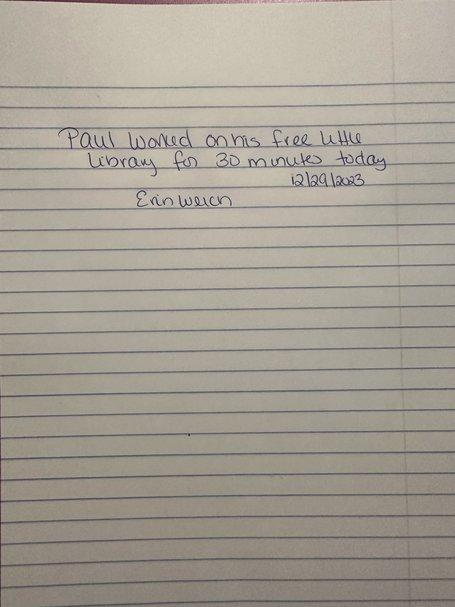 Paul worked on his free little
library for 30 minutes today
12/29/2023
Erin Welch